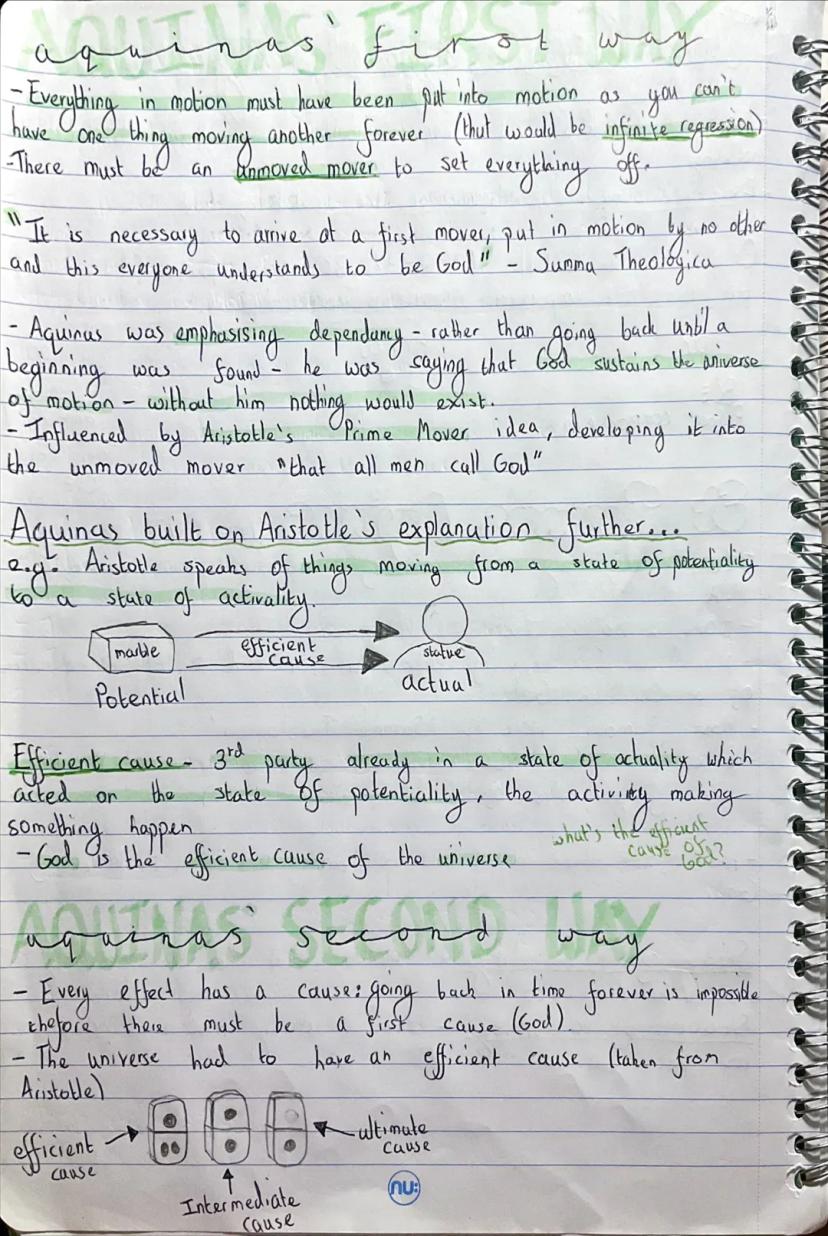 AQUINAS FIRST WAY
aquinas' first way
- Everything in motion must have been put into motion as you can't
have one thing moving another forever (that would be infinite regression)
- There must be an unmoved mover to set everything off.
"It is necessary to arrive at a first mover, put in motion by no other
and this everyone understands to be God" - Summa Theologica
- Aquinas was emphasising dependancy - rather than going back until a
beginning was found - he was saying that God sustains the universe
of motion - without him nothing would exist.
- Influenced by Aristotle's Prime Mover idea, developing it into
the unmoved mover "that all men call God"
Aquinas built on Aristotle's explanation further...
e.g. Aristotle speaks of things moving from a state of potentiality
to a state of activality.
marble
efficient
cause
statue
Potential
actual
Efficient cause - 3rd party already in a state of actuality which
acted on the state of potentiality, the activity making
something happen
- God is the efficient cause of the universe
what's the efficient
cause of
God?
AQUINAS SECOND WAY
aquinas' second way
- Every effect has a cause: going back in time forever is impossible
thefore there must be a first cause (God).
- The universe had to have an efficient cause (taken from
Aristotle)
efficient
cause
ultimate
cause
Intermediate
cause
nu: